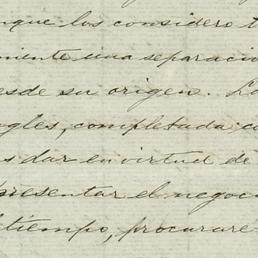 nque los considero t
mente una separacio
esde su origen. La
ngles, completada co
s dar en virtud de
presentar el negoc
tiempo, procurare